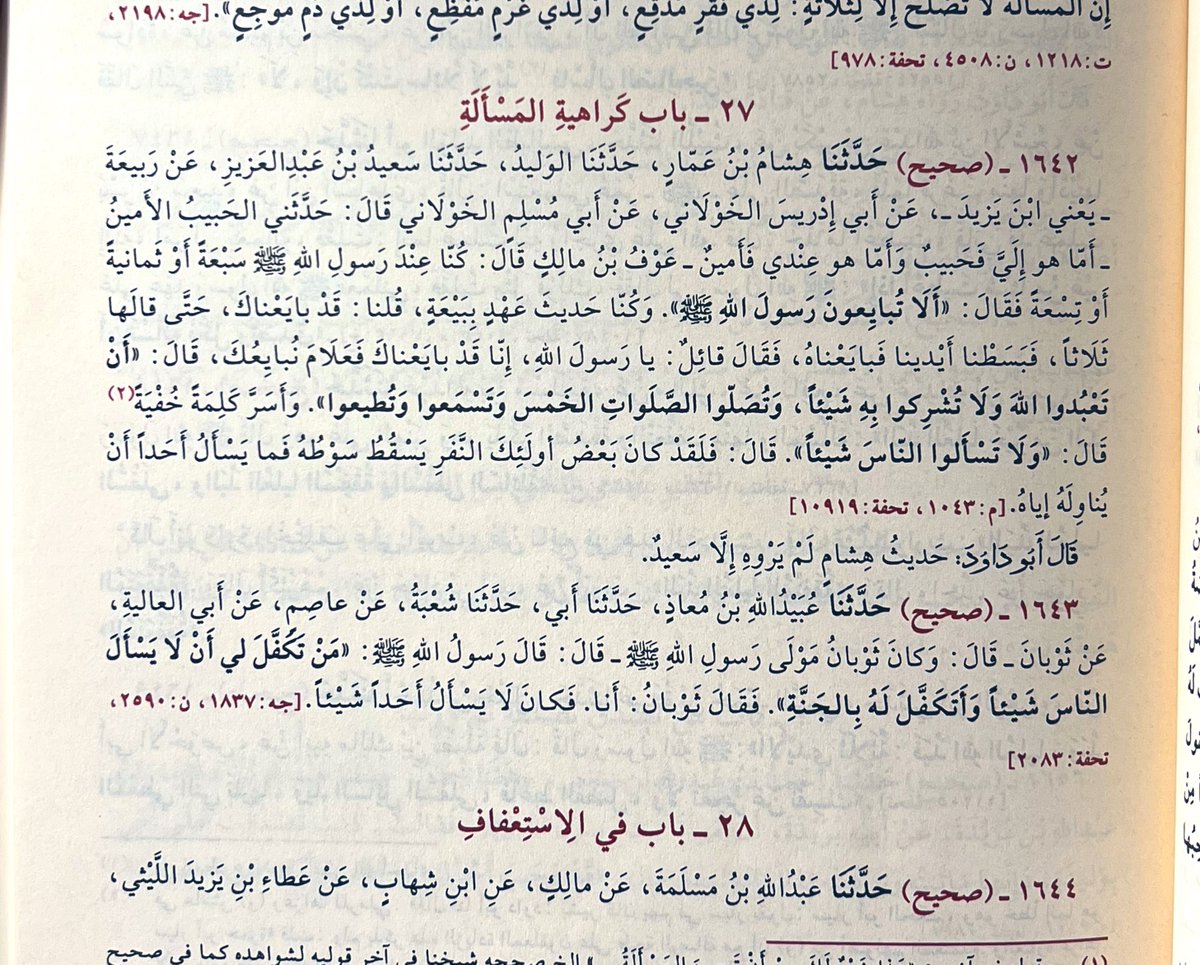 إِنَّ المَسْأَلَةَ لَا تَصْلُحُ إِلَّا لِثَلَاثَةٍ: لِذِي فَقْرٍ مُدْقِعٍ، أَوْ لِذِي غُرْمٍ مُفْظِعٍ، أَوْ لِذِي دَمٍ مُوجِعٍ». [جه: ٢١٩٨،
ت: ١٢١٨، ن: ٤٥٠٨، تحفة: ٩٧٨]
٢٧ ـ باب كَراهيةِ المَسْأَلَةِ
١٦٤٢ ـ (صحيح) حَدَّثَنَا هِشامُ بْنُ عَمّارٍ، حَدَّثَنَا الوَليدُ، حَدَّثَنَا سَعيدُ بْنُ عَبْدِالعَزيز، عَنْ رَبيعَةَ
ـ يَعْني ابْنَ يَزيدَ ـ، عَنْ أَبي إِدْريسَ الخَوْلَاني، عَنْ أَبي مُسْلِمٍ الخَوْلَاني قَالَ: حَدَّثَني الحَبيبُ الأَمينُ
ـ أَمّا هو إِلَيَّ فَحَبيبٌ وَأَمّا هو عِنْدي فَأَمينٌ ـ عَوْفُ بْنُ مالِكٍ قَالَ: كُنّا عِنْدَ رَسولِ اللهِ ﷺ سَبْعَةً أَوْ ثَمانيةً
أَوْ تِسْعَةً فَقَالَ: «أَلَا تُبايِعونَ رَسولَ اللهِ ﷺ». وَكُنّا حَديثَ عَهْدٍ بِبَيْعَةٍ، قُلنا: قَدْ بايَعْناكَ، حَتَّى قالَها
ثَلَاثاً، فَبَسَطْنا أَيْدينا فَبايَعْناهُ، فَقَالَ قائِلٌ: يا رَسولَ اللهِ، إِنّا قَدْ بايَعْناكَ فَعَلَامَ نُبايِعُكَ، قَالَ: «أَنْ
تَعْبُدوا اللهَ وَلَا تُشْرِكوا بِهِ شَيْئاً، وَتُصَلّوا الصَّلَواتِ الخَمْسَ وَتَسْمَعوا وَتُطيعوا». وَأَسَرَّ كَلِمَةً خُفْيَةً(٢)
قَالَ: «وَلَا تَسْأَلوا النّاسَ شَيْئاً». قَالَ: فَلَقَدْ كانَ بَعْضُ أولَئِكَ النَّفَرِ يَسْقُطُ سَوْطُهُ فَما يَسْأَلُ أَحَداً أَنْ
يُناوِلَهُ إِياهُ. [م: ١٠٤٣، تحفة: ١٠٩١٩]
قَالَ أَبُو دَاوُدَ: حَديثُ هِشامٍ لَمْ يَرْوِهِ إِلَّا سَعيدٌ.
١٦٤٣ ـ (صحيح) حَدَّثَنَا عُبَيْدُاللهِ بْنُ مُعاذٍ، حَدَّثَنَا أَبي، حَدَّثَنَا شُعْبَةُ، عَنْ عاصِمٍ، عَنْ أَبي العالِيةِ،
عَنْ ثَوْبانَ ـ قَالَ: وَكانَ ثَوْبانُ مَوْلَى رَسولِ اللهِ ﷺ ـ قَالَ: قَالَ رَسولُ اللهِ ﷺ: «مَنْ تَكَفَّلَ لي أَنْ لَا يَسْأَلَ
النّاسَ شَيْئاً وَأَتَكَفَّلَ لَهُ بِالجَنَّةِ». فَقَالَ ثَوْبانُ: أَنا. فَكانَ لَا يَسْأَلُ أَحَداً شَيْئاً. [جه: ١٨٣٧، ن: ٢٥٩٠،
تحفة: ٢٠٨٣]
٢٨ ـ باب في الِاسْتِعْفافِ
١٦٤٤ ـ (صحيح) حَدَّثَنَا عَبْدُاللهِ بْنُ مَسْلَمَةَ، عَنْ مالِكٍ، عَنِ ابْنِ شِهابٍ، عَنْ عَطاءِ بْنِ يَزيدَ اللَّيْثي،